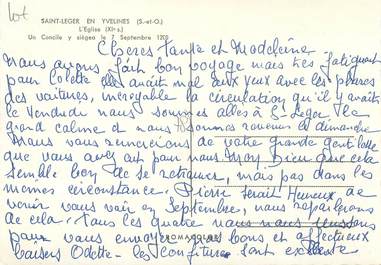 lot
SAINT-LEGER EN YVELINES (S.-et-O.)
L'Eglise (XIe s.)
Un Concile y siégea le 7 Septembre 1208
Chères Tante et Madeleine
Nous avons fait bon voyage mais très fatiguant
pour Colette elle avait mal aux yeux avec les phares
des voitures, incroyable la circulation qu'il y avait
le Vendredi nous sommes allés à St Léger le
grand calme et nous sommes revenus dimanche
Nous vous remercions de votre grande gentillesse
que vous avez eut pour nous, Bien que cela
semble bon de se retrouver, mais pas dans les
mêmes circonstance. Pierre serait Heureux de
venir vous voir en Septembre, nous reparlerons
de cela. Tous les quatre nous nous unissons
pour vous envoyer nos bons et affectueux
baisers Odette - les confitures sont excellente